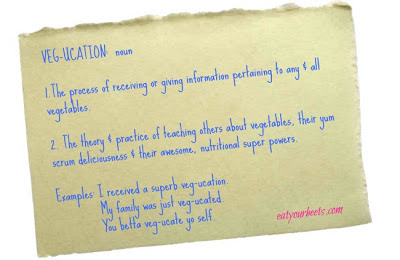 VEG-UCATION: noun
1.The process of receiving or giving information pertaining to any & all
vegetables.
2. The theory & practice of teaching others about vegetables, their yum
scrum deliciousness & their awesome, nutritional super powers.
Examples: I received a superb veg-ucation.
My family was just veg-ucated.
You betta veg-ucate yo self.
eatyourbeets.com